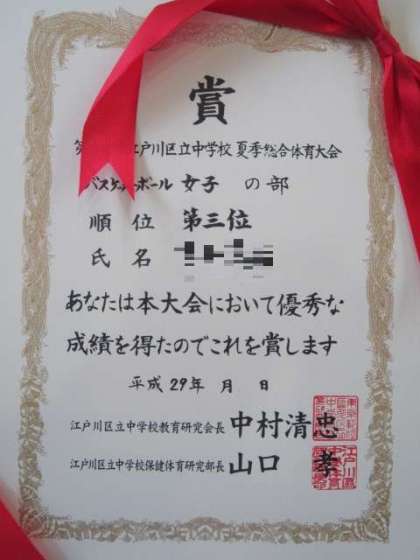 賞
第 江戸川区立中学校 夏季総合体育大会
バスケットボール 女子 の部
順位 第三位
氏名
あなたは本大会において優秀な
成績を得たのでこれを賞します
平成 29年 月 日
江戸川区立中学校教育研究会長 中村清忠
江戸川区立中学校保健体育研究部長 山口 孝